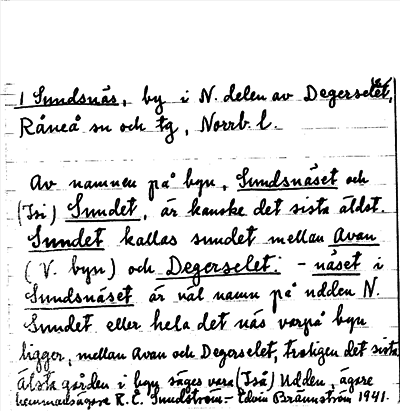 1 Sundsnäs, by i N. delen av Degerselet,
Råneå sn och tg, Norrb. l.
Av namnen på byn, Sundsnäset och
(Isi) Sundet, är kanske det sista äldst.
Sundet kallas sundet mellan Avan
(V. byn) och Degerselet. - näset i
Sundsnäset är väl namn på udden N.
Sundet eller hela det näs varpå byn
ligger, mellan Avan och Degerselet, troligen det sista.
Älsta gården i byn säges vara (Iså) Udden, ägare
hemmansägare K. E. Sundström. - Edvin Brännström 1941.